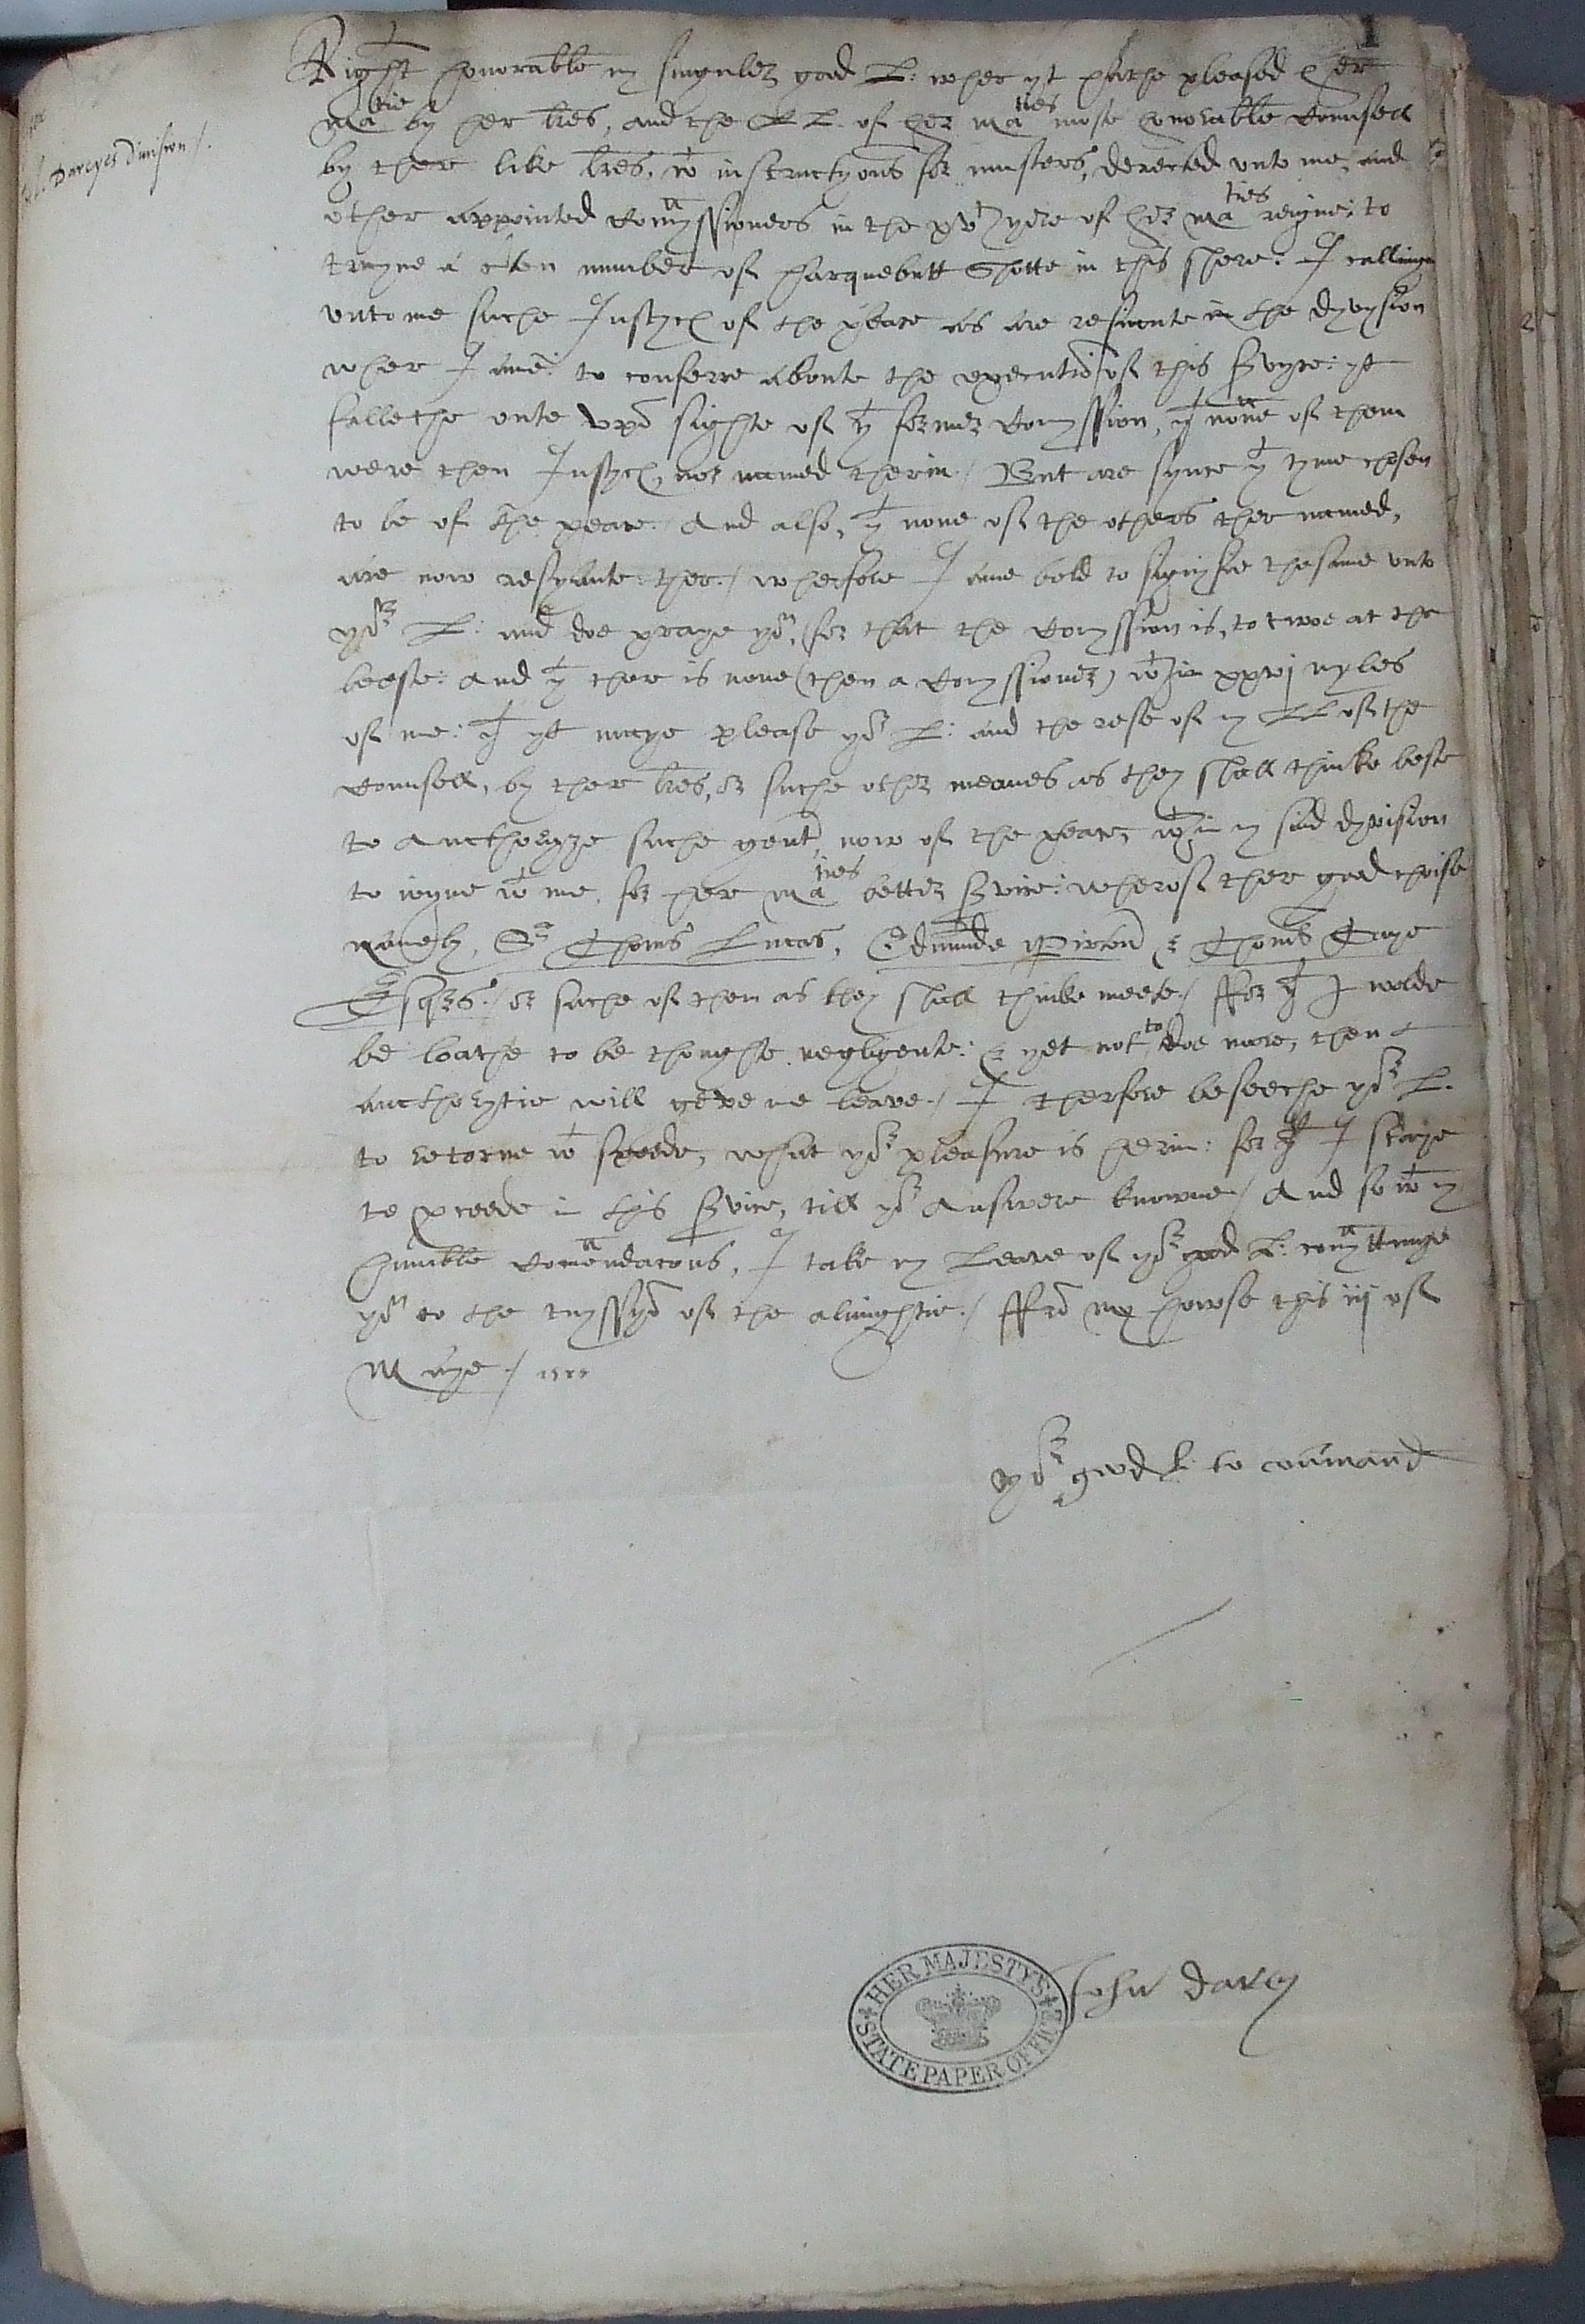 1
L. Darcyes diuision /.
Right honorable my singuler good L: wher yt hathe pleased her
Matie by her lres, and the LL of her Maties moste honorable Counsell
by ther like lres, wt instructyons for musters, derected unto me, and
other appointed Comyssioners in the xvth yere of her Maties reigne; to
trayne a cten number of harquebutt Shotte in this shere: I callinge
unto me suche Justyc of the peace as are resiante in the dyvysion
wher I ame: to conferre aboute the executio of this Svyce: yt
fallethe oute upo sighte of yt former Comyssion, yt none of them
were then Justyc, nor named therin / But are synce yt tyme chosen
to be of the peace. And also, yt none of the others ther named,
are now resyante ther:/ wherfore I ame bold to signifie thesame unto
yor L: and doe praye yo, (for that the Comyssion is, to twoe at the
leeste: And yt ther is none (then a Comyssioner) wtin xxvj myles
of me: yt yt maye please yor L: and the rest of my LL of the
Counsell, by ther lres, or suche other meanes as they shall thinke beste
to Aucthoryze suche gent, now of the peace, wtin my said dyvision
to ioyne wt me, for her Maties better Svice: wherof ther good choise
namely, Sr Thoms Lucas, Edmunde Pirton & Thoms Teye
Esqrs./ or suche of them as they shall thinke meete / ffor yt I wolde
be loathe to be thoughte negligente: & yet not to doe more, then
aucthorytie will geve me leave./ I therfore beseeche yor L.
to retorne wt speede, what yor pleasure is herin: for yt I staye
to pceede in this Svice, till yor Answere knowne / And so wt my
humble Comendacons, I take my Leave of yor good L: comyttinge
yo to the tuyssyo of the almightie./ ffro my howse this iij of
Maye /
yor good L. to command
John darcy
HER MAJESTY'S STATE PAPER OFFICE